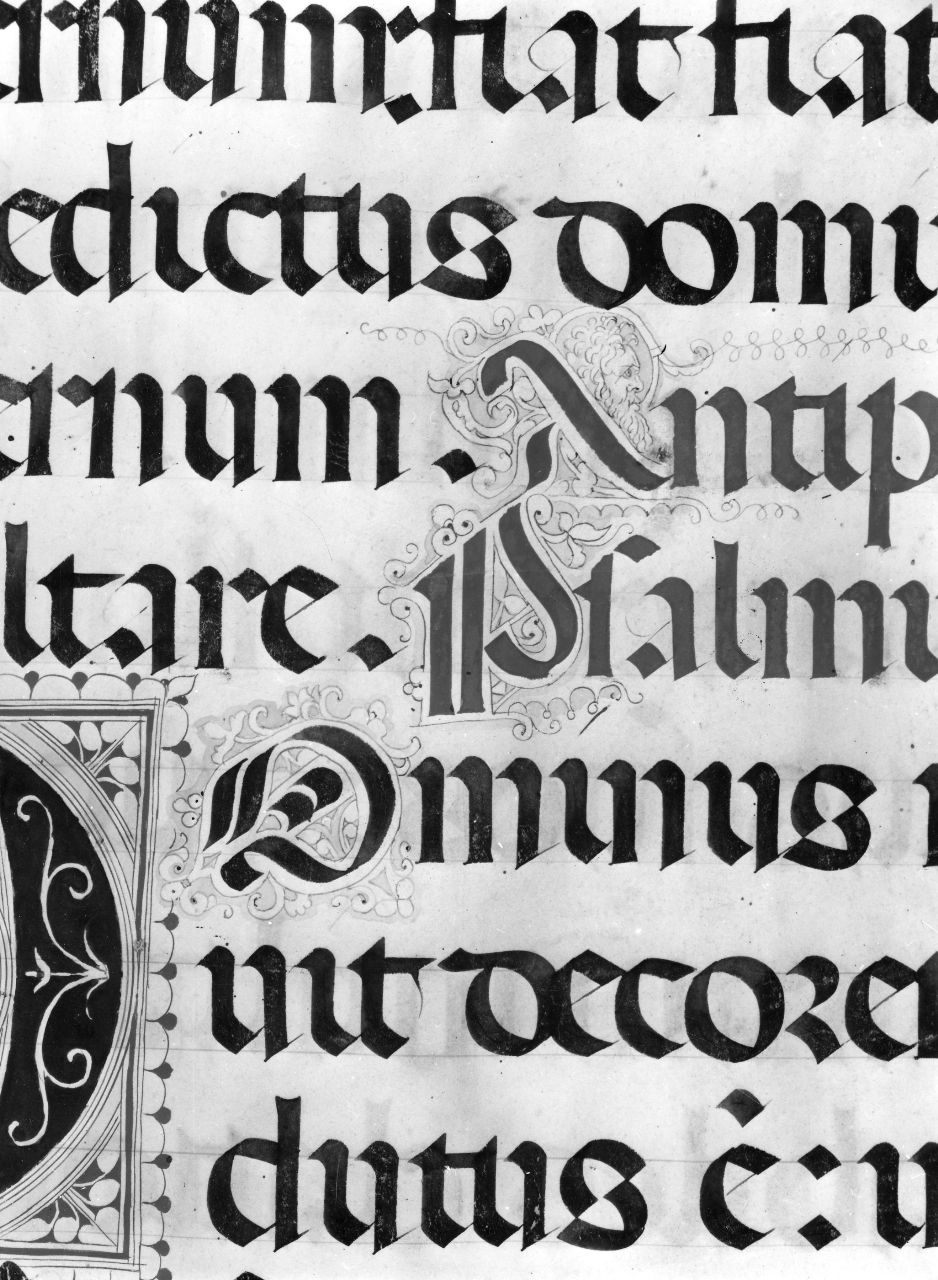 ernum. fiat fiat
edictus domi
ernum . Antip
ltare . Psalmu
Ominus
uit decore
dutus ē: i